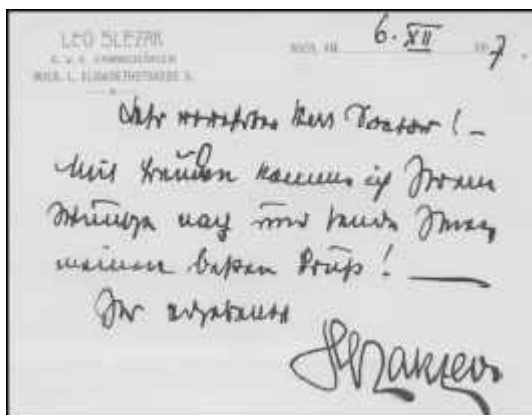 LEO SLEZAK
K. U. K. KAMMERSÄNGER
WIEN, I. ELISABETHSTRASSE
WIEN, AM 6. XII 7.
Sehr verehrter Herr Doctor! –
Mit Freuden komme ich Ihrem
Wunsche nach und sende Ihnen
meinen besten Gruß! —
Ihr ergebener